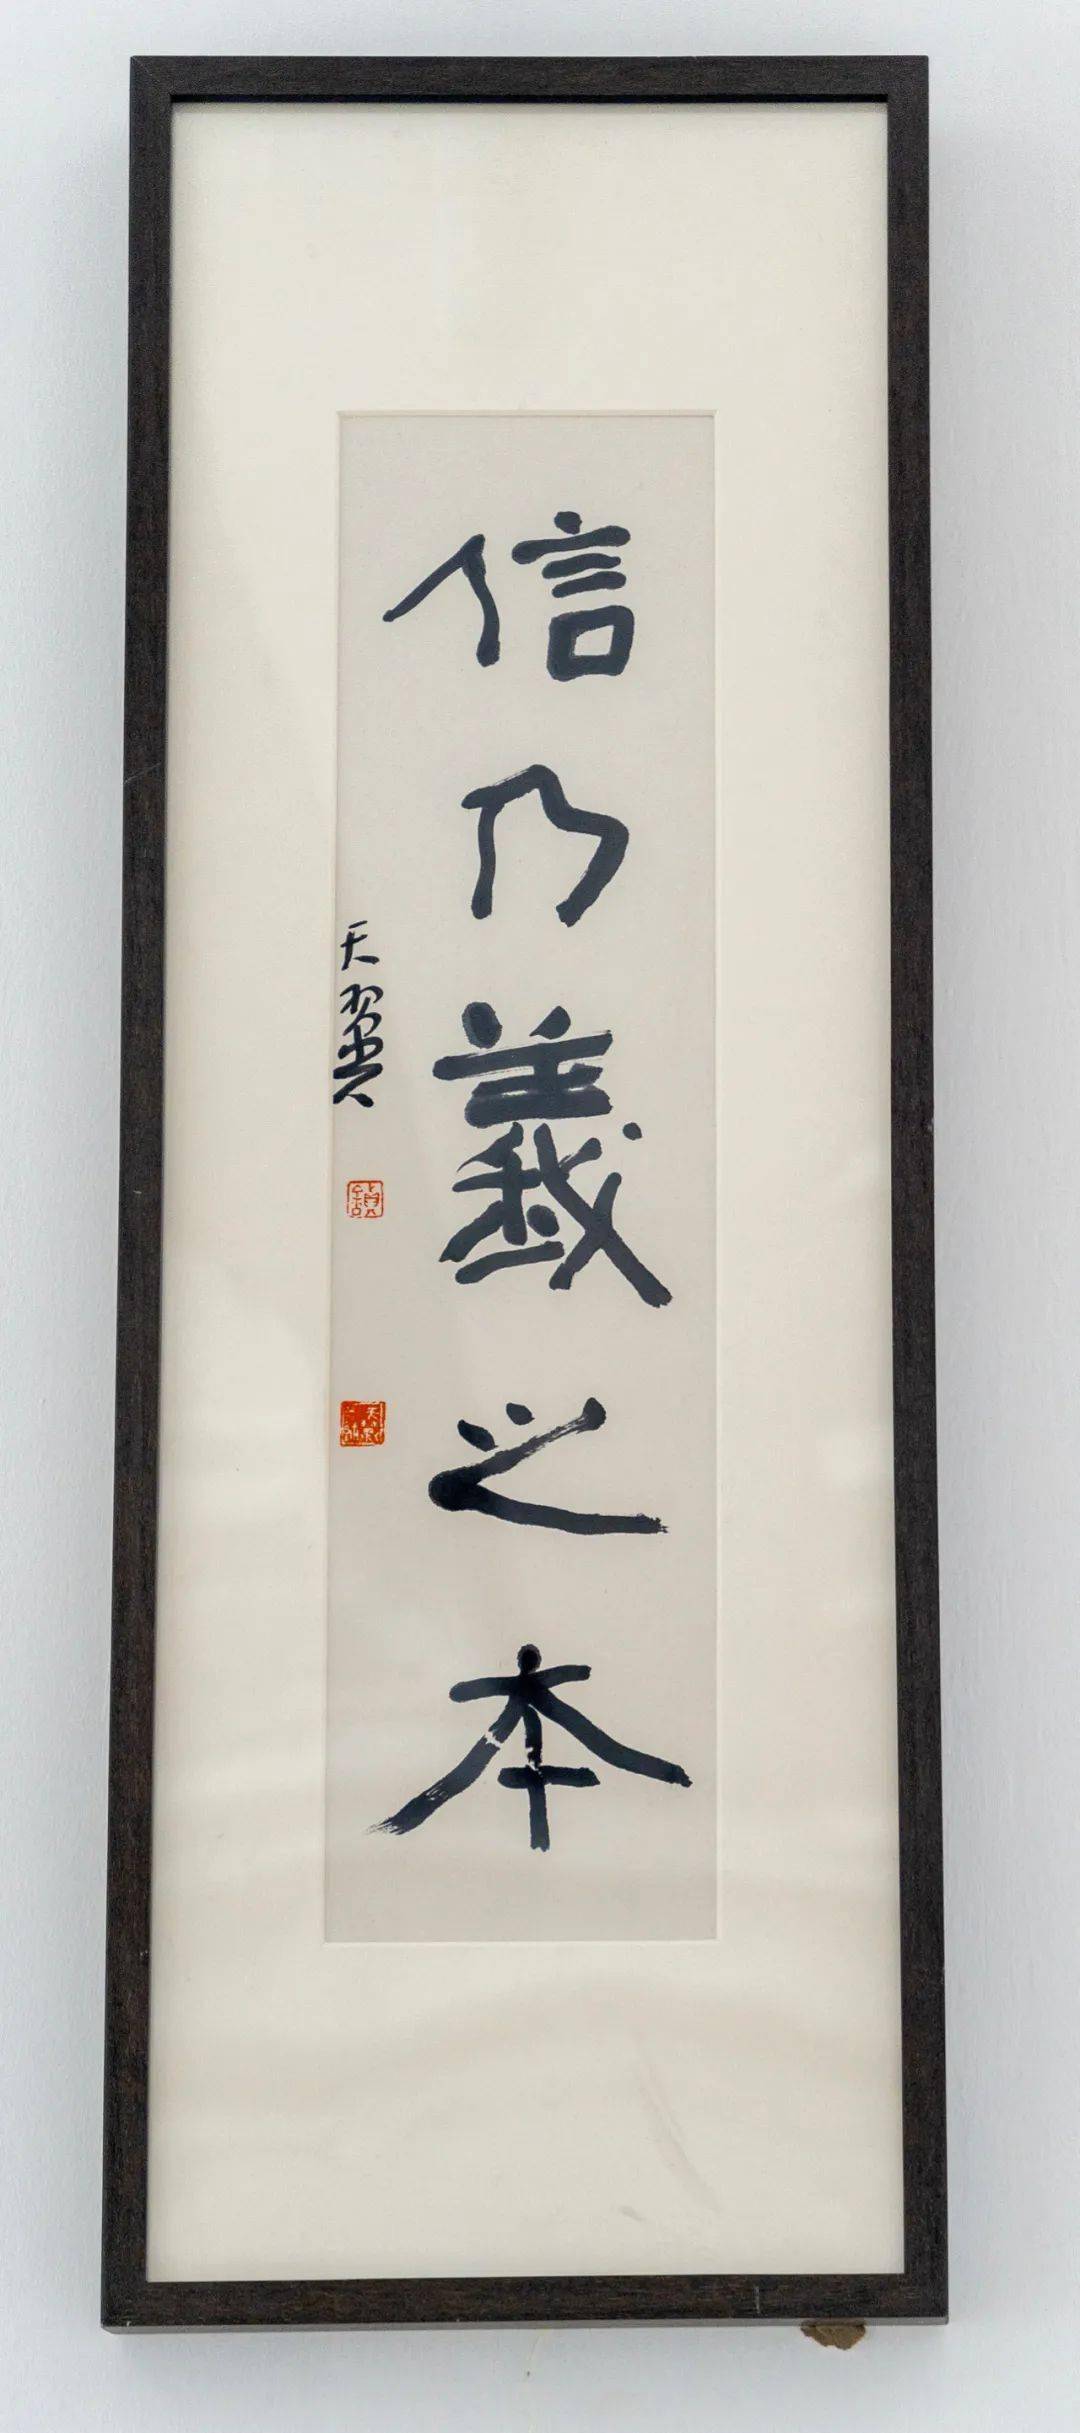 信乃義之本
天翼